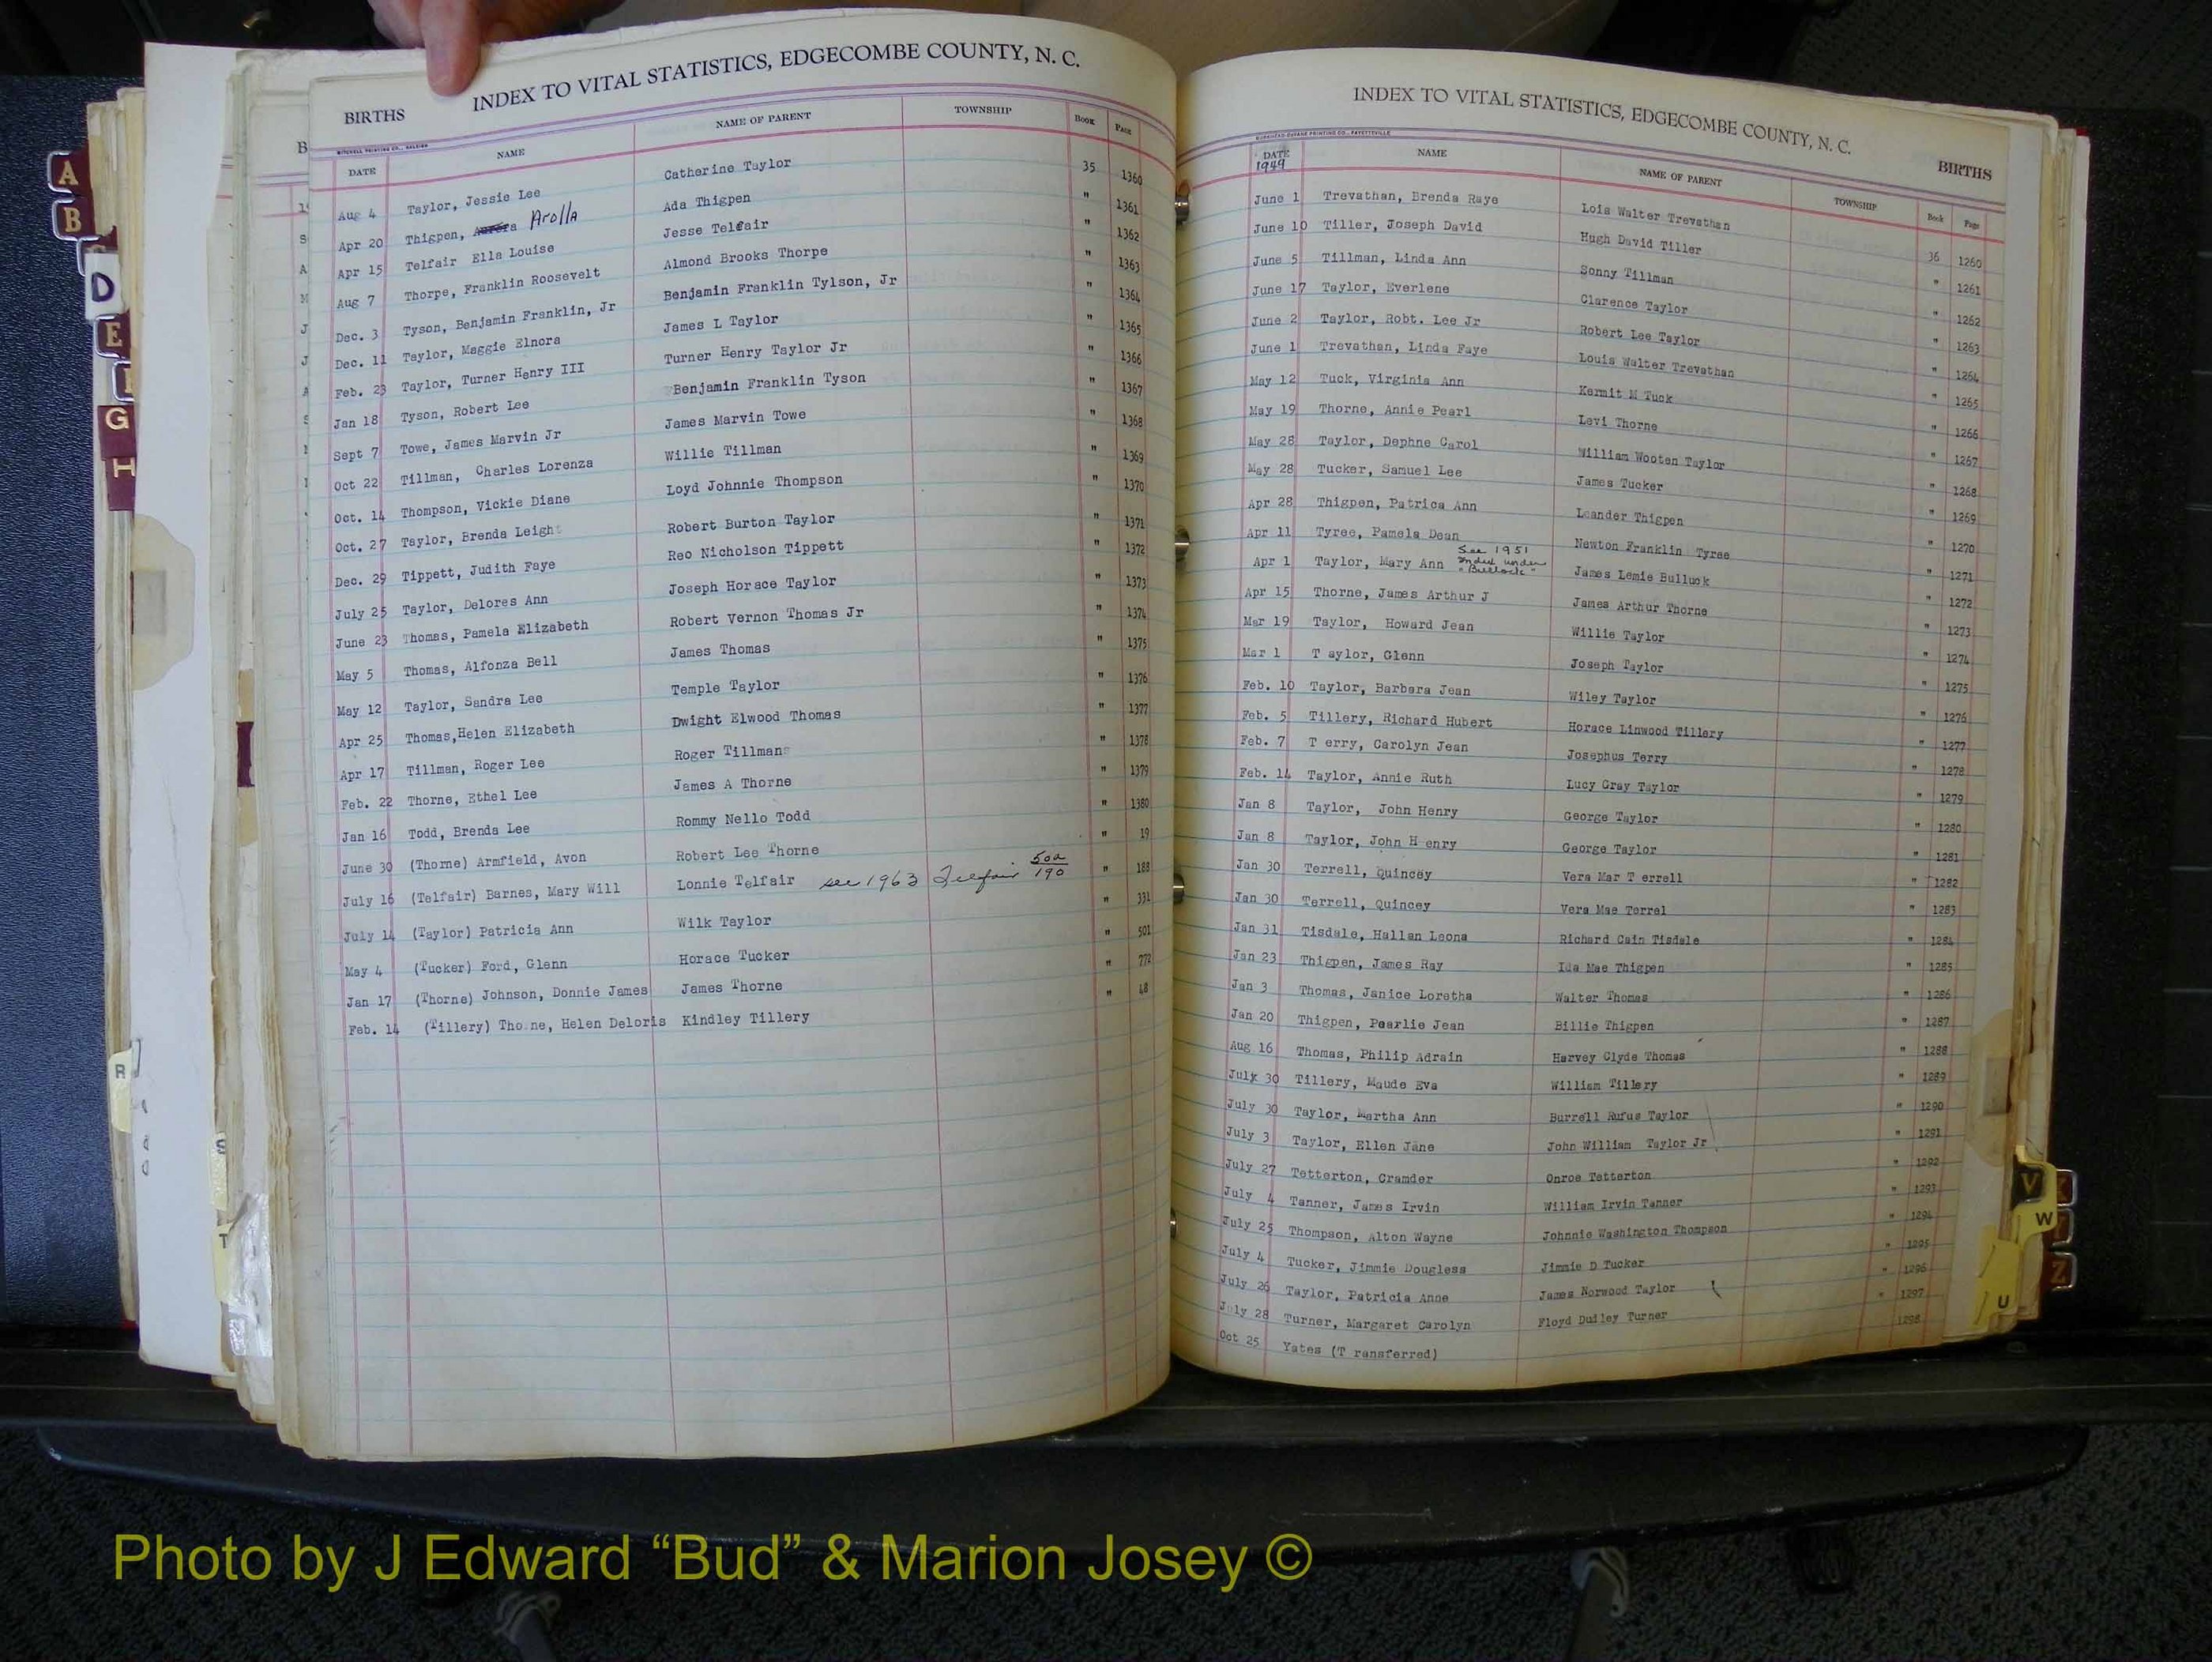 INDEX TO VITAL STATISTICS, EDGECOMBE COUNTY, N. C.
BIRTHS
MITCHELL PRINTING CO., RALEIGH
DATE NAME NAME OF PARENT TOWNSHIP Book Page
Aug 4 Taylor, Jessie Lee Catherine Taylor 35 1360
Apr 20 Thigpen, Aurora Arolla Ada Thigpen " 1361
Apr 15 Telfair Ella Louise Jesse Telfair " 1362
Aug 7 Thorpe, Franklin Roosevelt Almond Brooks Thorpe " 1363
Dec. 3 Tyson, Benjamin Franklin, Jr Benjamin Franklin Tylson, Jr " 1364
Dec. 11 Taylor, Maggie Elnora James L Taylor " 1365
Feb. 23 Taylor, Turner Henry III Turner Henry Taylor Jr " 1366
Jan 18 Tyson, Robert Lee Benjamin Franklin Tyson " 1367
Sept 7 Towe, James Marvin Jr James Marvin Towe " 1368
Oct 22 Tillman, Charles Lorenza Willie Tillman " 1369
Oct. 14 Thompson, Vickie Diane Loyd Johnnie Thompson " 1370
Oct. 27 Taylor, Brenda Leigh Robert Burton Taylor " 1371
Dec. 29 Tippett, Judith Faye Reo Nicholson Tippett " 1372
July 25 Taylor, Delores Ann Joseph Horace Taylor " 1373
June 23 Thomas, Pamela Elizabeth Robert Vernon Thomas Jr " 1374
May 5 Thomas, Alfonza Bell James Thomas " 1375
May 12 Taylor, Sandra Lee Temple Taylor " 1376
Apr 25 Thomas,Helen Elizabeth Dwight Elwood Thomas " 1377
Apr 17 Tillman, Roger Lee Roger Tillmans " 1378
Feb. 22 Thorne, Ethel Lee James A Thorne " 1379
Jan 16 Todd, Brenda Lee Rommy Nello Todd " 1380
June 30 (Thorne) Armfield, Avon Robert Lee Thorne " 19
July 16 (Telfair) Barnes, Mary Will Lonnie Telfair see 1963 Telfair 50a 190 " 188
July 14 (Taylor) Patricia Ann Wilk Taylor " 331
May 4 (Tucker) Ford, Glenn Horace Tucker " 501
Jan 17 (Thorne) Johnson, Donnie James James Thorne " 772
Feb. 14 (Tillery) Tho ne, Helen Deloris Kindley Tillery " 48
INDEX TO VITAL STATISTICS, EDGECOMBE COUNTY, N. C.
BIRTHS
DATE NAME NAME OF PARENT TOWNSHIP Book Page
1949
June 1 Trevathan, Brenda Raye Lois Walter Trevathan 36 1260
June 10 Tiller, Joseph David Hugh David Tiller " 1261
June 5 Tillman, Linda Ann Sonny Tillman " 1262
June 17 Taylor, Everlene Clarence Taylor " 1263
June 2 Taylor, Robt. Lee Jr Robert Lee Taylor " 1264
June 1 Trevathan, Linda Faye Louis Walter Trevathan " 1265
May 12 Tuck, Virginia Ann Kermit M Tuck " 1266
May 19 Thorne, Annie Pearl Levi Thorne " 1267
May 28 Taylor, Daphne Carol William Wooten Taylor " 1268
May 28 Tucker, Samuel Lee James Tucker " 1269
Apr 28 Thigpen, Patrica Ann Leander Thigpen " 1270
Apr 11 Tyree, Pamela Dean Newton Franklin Tyree " 1271
Apr 1 Taylor, Mary Ann See 1951 Index under "Bullock" James Lemie Bulluck " 1272
Apr 15 Thorne, James Arthur J James Arthur Thorne " 1273
Mar 19 Taylor, Howard Jean Willie Taylor " 1274
Mar 1 T aylor, Glenn Joseph Taylor " 1275
Feb. 10 Taylor, Barbara Jean Wiley Taylor " 1276
Feb. 5 Tillery, Richard Hubert Horace Linwood Tillery " 1277
Feb. 7 T erry, Carolyn Jean Josephus Terry " 1278
Feb. 14 Taylor, Annie Ruth Lucy Gray Taylor " 1279
Jan 8 Taylor, John Henry George Taylor " 1280
Jan 8 Taylor, John H enry George Taylor " 1281
Jan 30 Terrell, Quincey Vera Mar T errell " 1282
Jan 30 Terrell, Quincey Vera Mae Terrel " 1283
Jan 31 Tisdale, Hallan Leona Richard Cain Tisdale " 1284
Jan 23 Thigpen, James Ray Ida Mae Thigpen " 1285
Jan 3 Thomas, Janice Loretha Walter Thomas " 1286
Jan 20 Thigpen, Pearlie Jean Billie Thigpen " 1287
Aug 16 Thomas, Philip Adrain Harvey Clyde Thomas " 1288
July 30 Tillery, Maude Eva William Tillery " 1289
July 30 Taylor, Martha Ann Burrell Rufus Taylor " 1290
July 3 Taylor, Ellen Jane John William Taylor Jr " 1291
July 27 Tetterton, Cramder Onroe Tetterton " 1292
July 4 Tanner, James Irvin William Irvin Tanner " 1293
July 25 Thompson, Alton Wayne Johnnie Washington Thompson " 1294
July 4 Tucker, Jimmie Dougless Jimmie D Tucker " 1295
July 26 Taylor, Patricia Anne James Norwood Taylor " 1296
July 28 Turner, Margaret Carolyn Floyd Dudley Turner " 1297
Oct 25 Yates (T ransferred) 1298
A
B
D
E
G
H
R
S
T
V
W
U
Z
Photo by J Edward “Bud” & Marion Josey ©